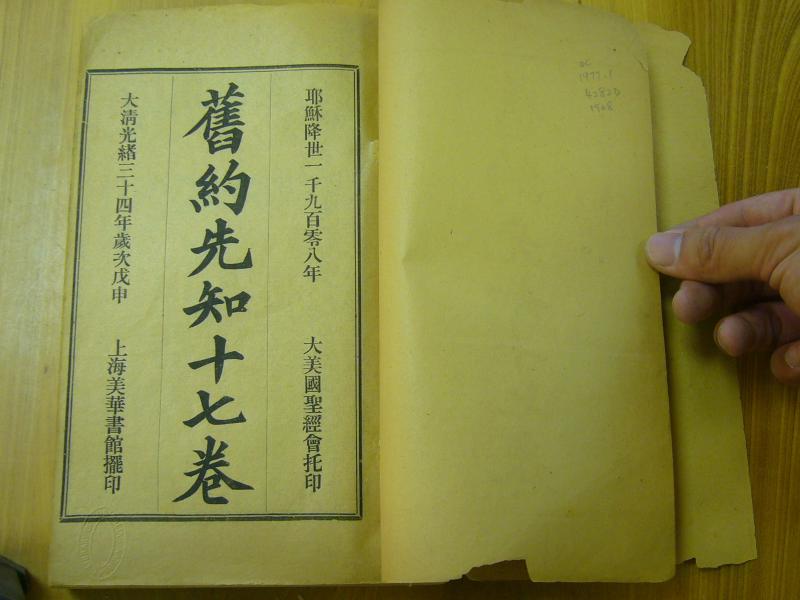 耶穌降世一千九百零八年
大美國聖經會托印
舊約先知十七卷
大清光緒三十四年歲次戊申
上海美華書館擺印
1977.1
4282D
1908